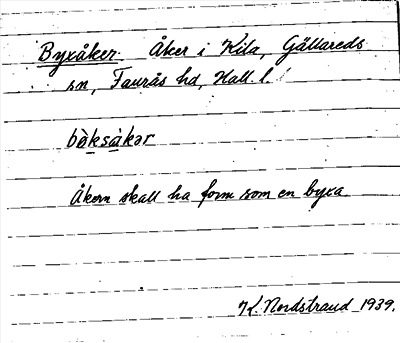 Byxåker: Åker i Kila, Gällareds
sn, Faurås hd, Hall. l.
bỳksàkər
Åkern skall ha form som en byxa
K. Nordstrand 1939.